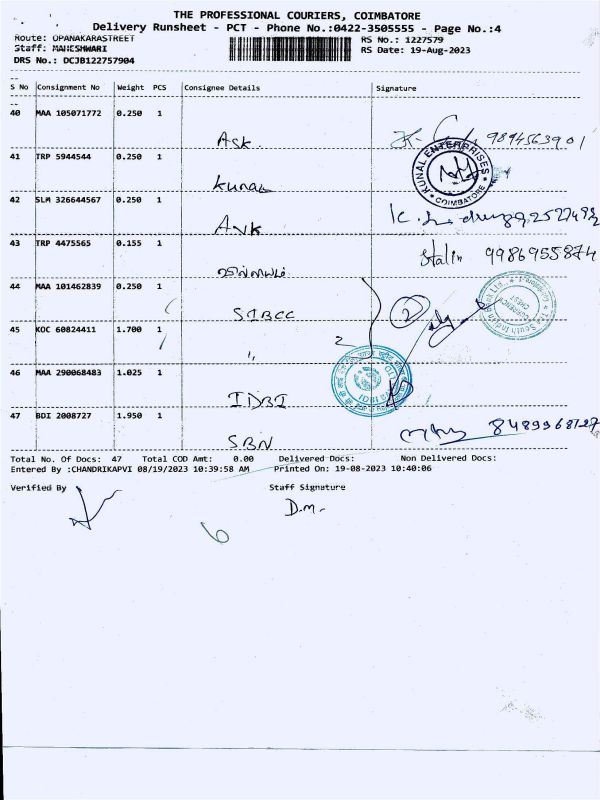 THE PROFESSIONAL COURIERS, COIMBATORE
Delivery Runsheet - PCT - Phone No.:0422-3505555 - Page No.:4
Route: OPANAKARASTREET RS No.: 1227579
Staff: MAHESHWARI RS Date: 19-Aug-2023
DRS No.: DCJB122757904
S No Consignment No Weight PCS Consignee Details Signature
40 MAA 105071772 0.250 1
Ask. 9894563901
41 TRP 5944544 0.250 1
Kunal KUNAL ENTERPRISES * COIMBATORE *
42 SLM 326644567 0.250 1
AVK
43 TRP 4475565 0.155 1
Stalin 9986955874
44 MAA 101462839 0.250 1
SIBCC 2
45 KOC 60824411 1.700 1
" 2
46 MAA 290068483 1.025 1
IDBI
47 BDI 2008727 1.950 1
SBN 8489968727
Total No. Of Docs: 47 Total COD Amt: 0.00 Delivered Docs: Non Delivered Docs:
Entered By :CHANDRIKAPVI 08/19/2023 10:39:58 AM Printed On: 19-08-2023 10:40:06
Verified By Staff Signature
D.M.